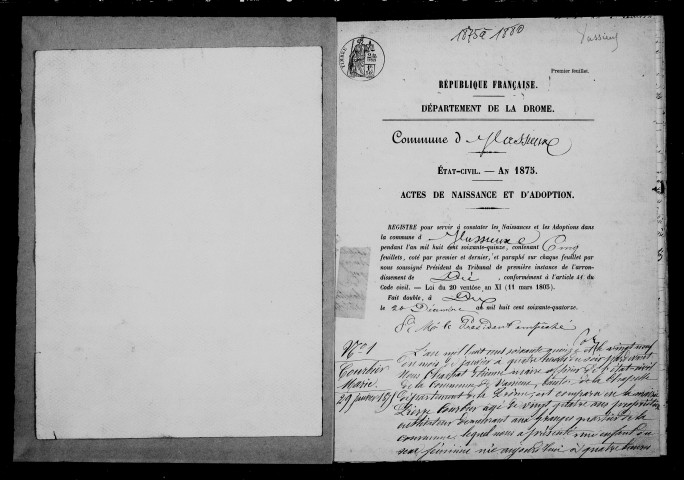 1875 à 1880
Vassieux
Premier feuillet.
RÉPUBLIQUE FRANÇAISE.
DÉPARTEMENT DE LA DROME.
Commune d Vassieux
ÉTAT-CIVIL. — AN 1875.
ACTES DE NAISSANCE ET D'ADOPTION.
REGISTRE pour servir à constater les Naissances et les Adoptions dans
la commune d Vassieux
pendant l'an mil huit cent soixante-quinze, contenant Cinq
feuillets, coté par premier et dernier, et paraphé sur chaque feuillet par
nous soussigné Président du Tribunal de première instance de l'arron-
dissement de Die conformément à l'article 41 du
Code civil. — Loi du 20 ventôse an XI (11 mars 1803).
Fait double, à Die
le 20 Décembre an mil huit cent soixante-quatorze.
Pr Mr le Président empêché
No 1
Courbier
Marie
29 janvier 1875
L'an mil huit cent soixante-quinze et le vingt neuf
du mois de janvier à quatre heures du soir, par devant
Nous Etienne maire officier de l'état civil
de la Commune de Vassieux, Canton de la Chapelle
département de la Drôme, est comparu en la mairie
Pierre Courbier agé de vingt quatre ans propriétaire
cultivateur demeurant aux granges quartier de la
commune, lequel nous a présenté une enfant du
sexe féminin née aujourd'hui à quatre heures